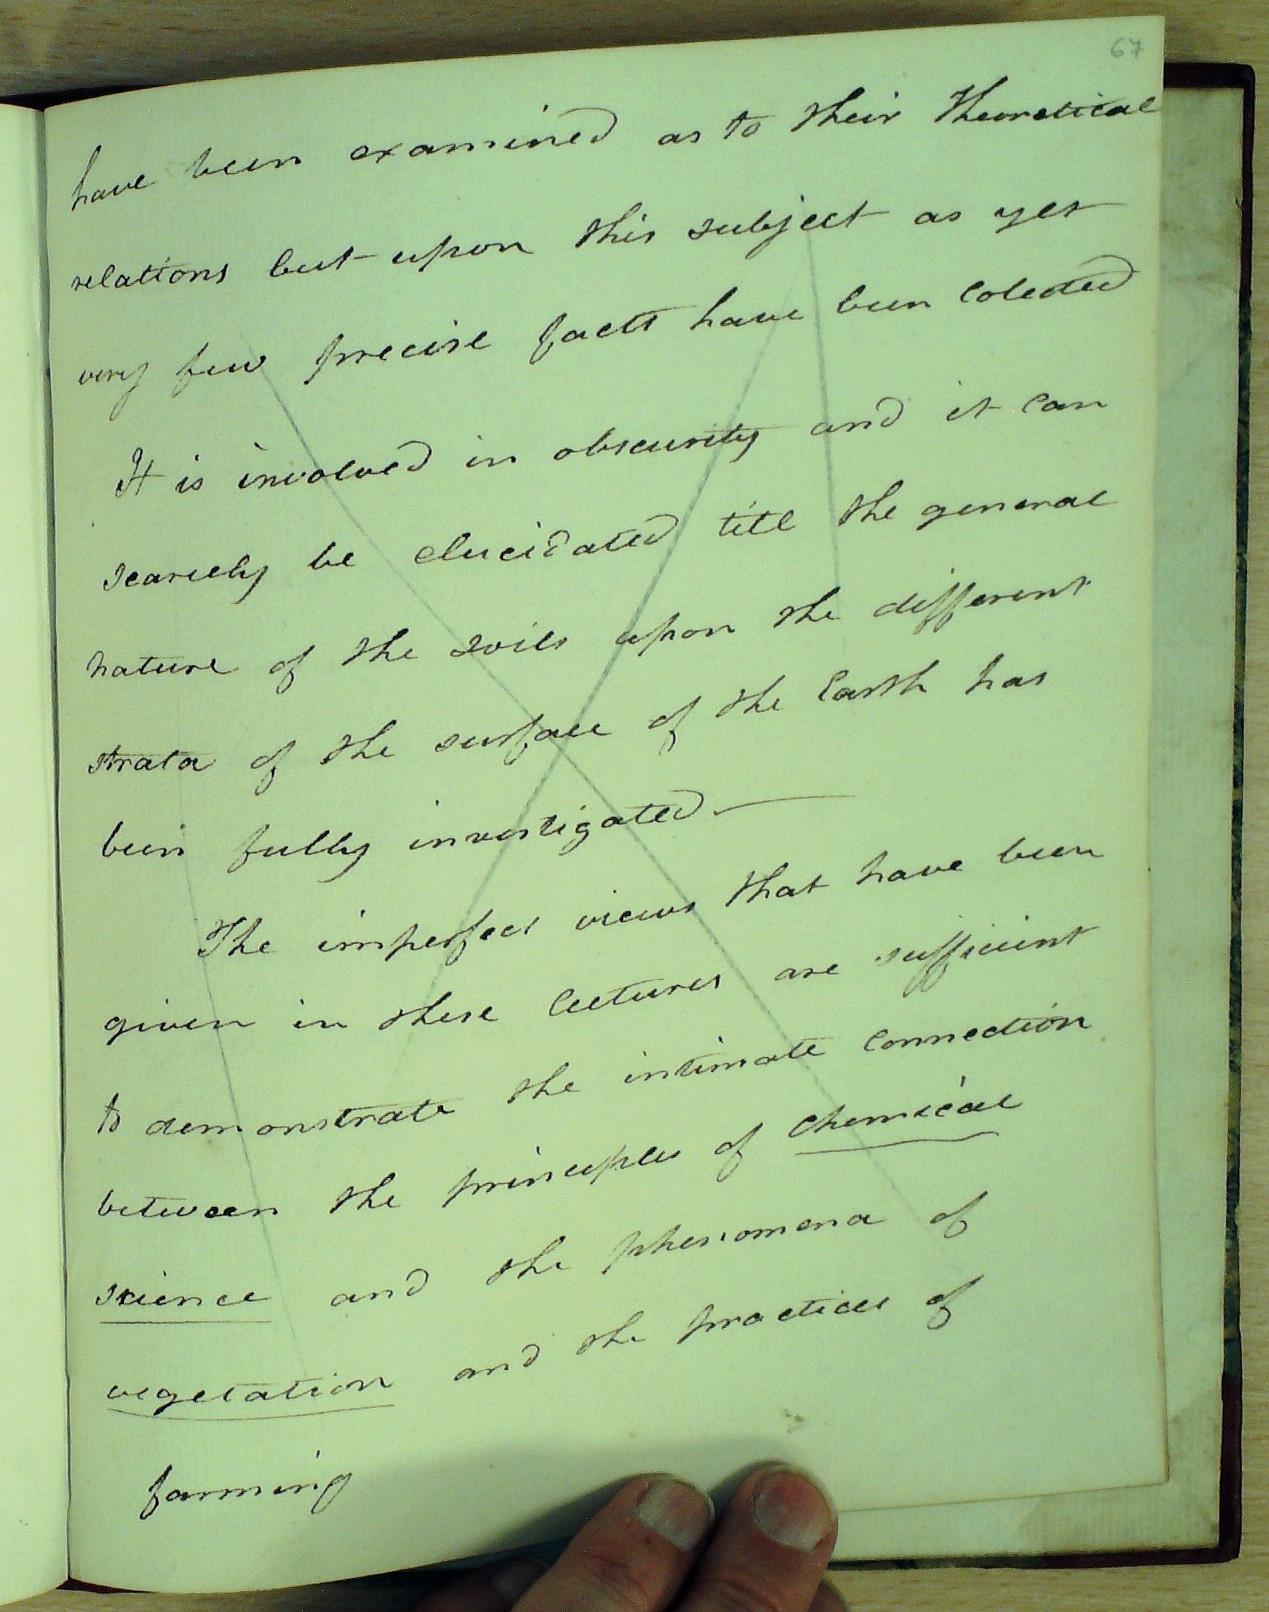 67
have been examined as to their theoretical
relations but upon this subject as yet
very few precise facts have been colected
It is involved in obscurity and it can
scarcely be elucidated till the general
nature of the soils upon the different
strata of the surface of the Earth has
been fully investigated —
The imperfect views that have been
given in these lectures are sufficient
to demonstrate the intimate connection
between the principles of chemical
science and the phenomena of
vegetation and the practices of
farming